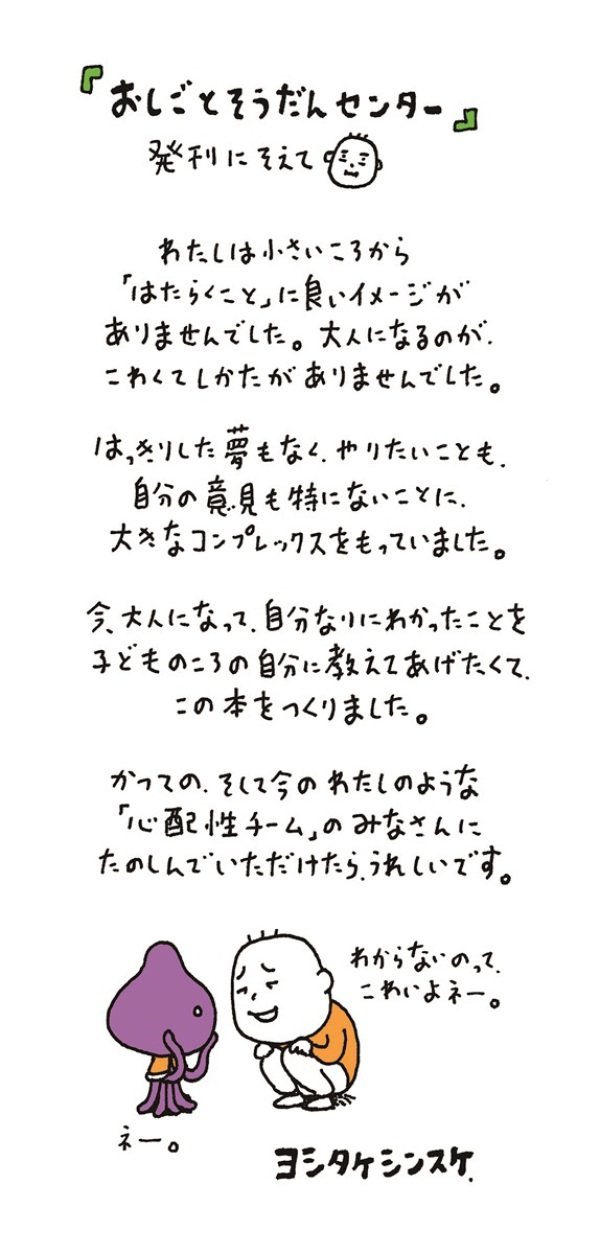 『おしごとそうだんセンター』
発刊にそえて
わたしは小さいころから
「はたらくこと」に良いイメージが
ありませんでした。大人になるのが、
こわくてしかたがありませんでした。
はっきりした夢もなく、やりたいことも、
自分の意見も特にないことに、
大きなコンプレックスをもっていました。
今、大人になって、自分なりにわかったことを
子どものころの自分に教えてあげたくて、
この本をつくりました。
かつての、そして今のわたしのような
「心配性チーム」のみなさんに
たのしんでいただけたら、うれしいです。
わからないのって、
こわいよネー。
ネー。
ヨシタケシンスケ